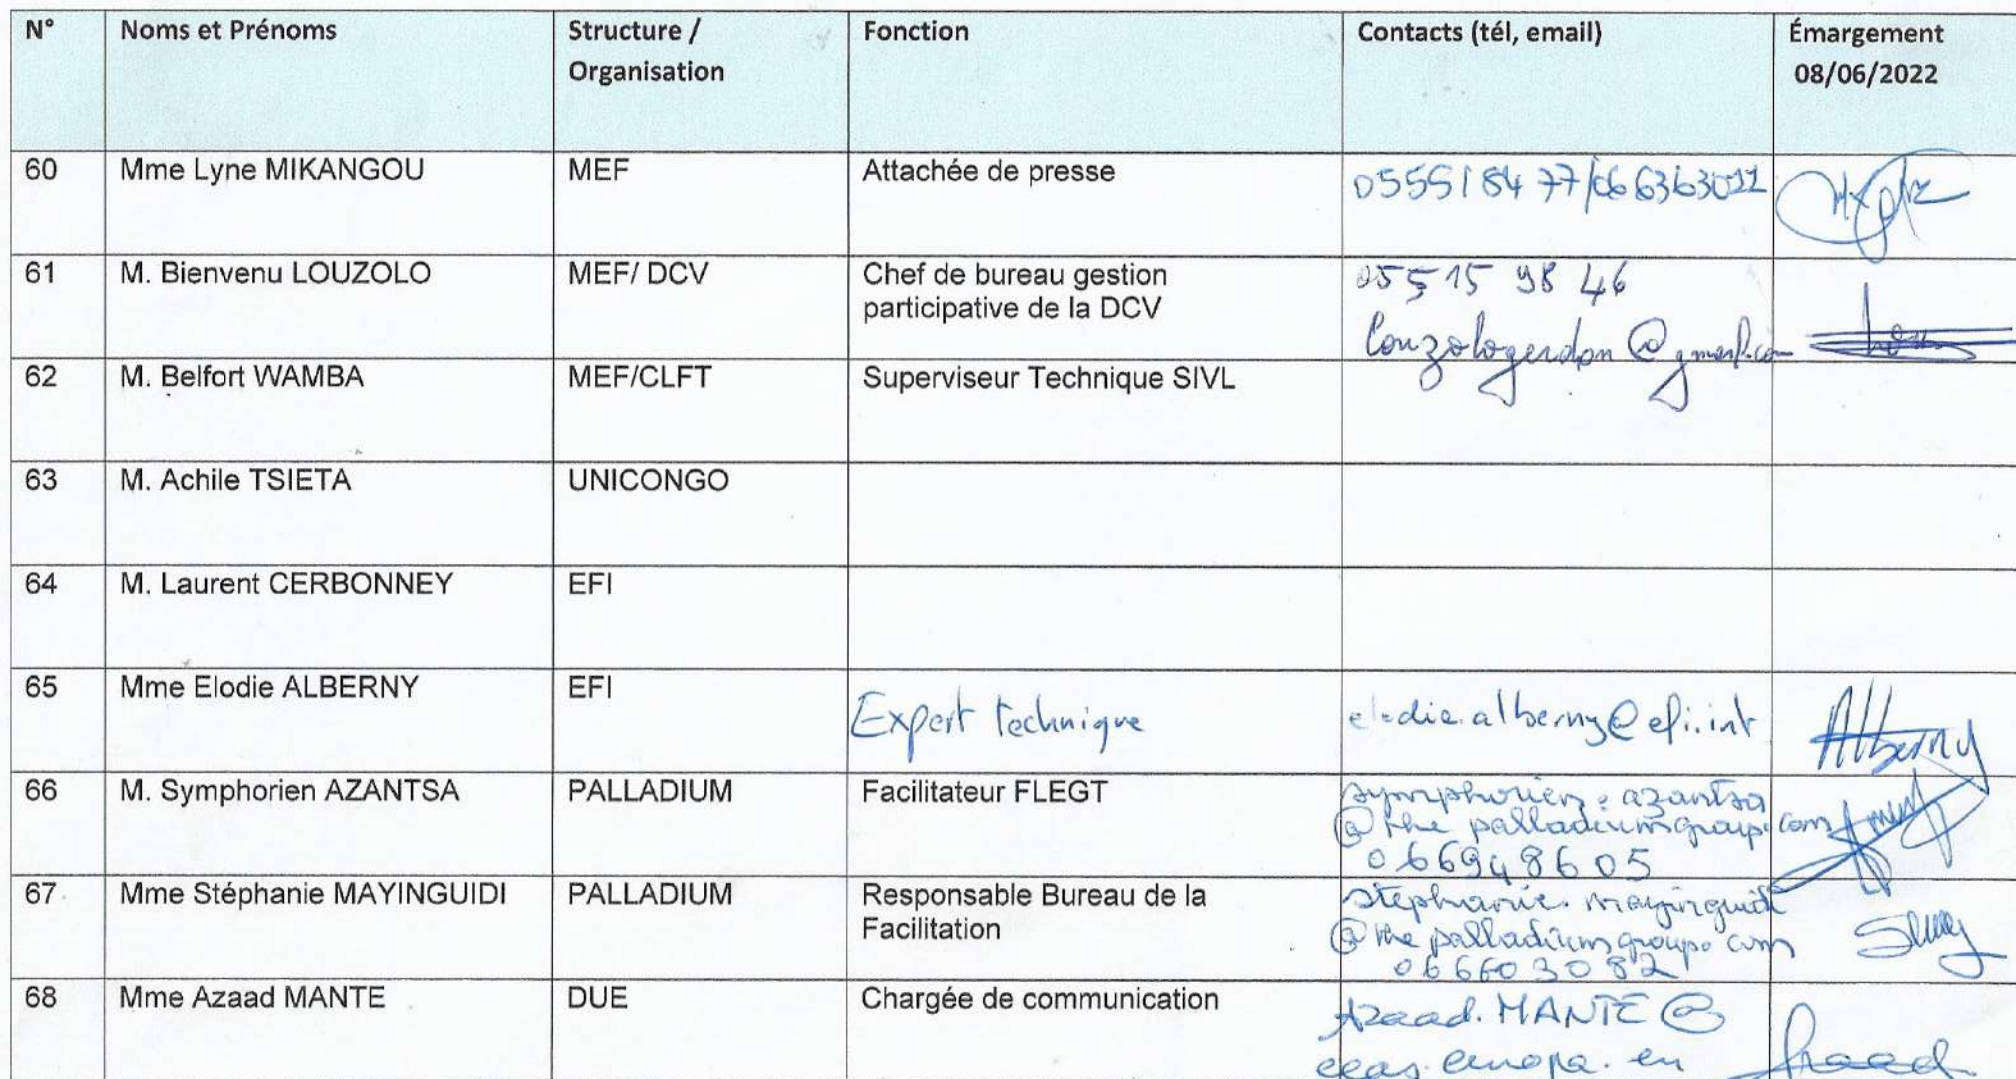 N° Noms et Prénoms Structure / Fonction Contacts (tél, email) Émargement
Organisation 08/06/2022
60 Mme Lyne MIKANGOU MEF Attachée de presse 055518477/066363011
61 M. Bienvenu LOUZOLO MEF/ DCV Chef de bureau gestion 055 15 98 46
participative de la DCV louzologerdon@gmail.com
62 M. Belfort WAMBA MEF/CLFT Superviseur Technique SIVL
63 M. Achile TSIETA UNICONGO
64 M. Laurent CERBONNEY EFI
65 Mme Elodie ALBERNY EFI Expert technique elodie.alberny@efi.int Alberny
66 M. Symphorien AZANTSA PALLADIUM Facilitateur FLEGT symphorien.azantsa
@thepalladiumgroup.com
066948605
67 Mme Stéphanie MAYINGUIDI PALLADIUM Responsable Bureau de la stephanie.mayinguidi
Facilitation @thepalladiumgroup.com
066603082
68 Mme Azaad MANTE DUE Chargée de communication Azaad.MANTE@
eeas.europa.eu